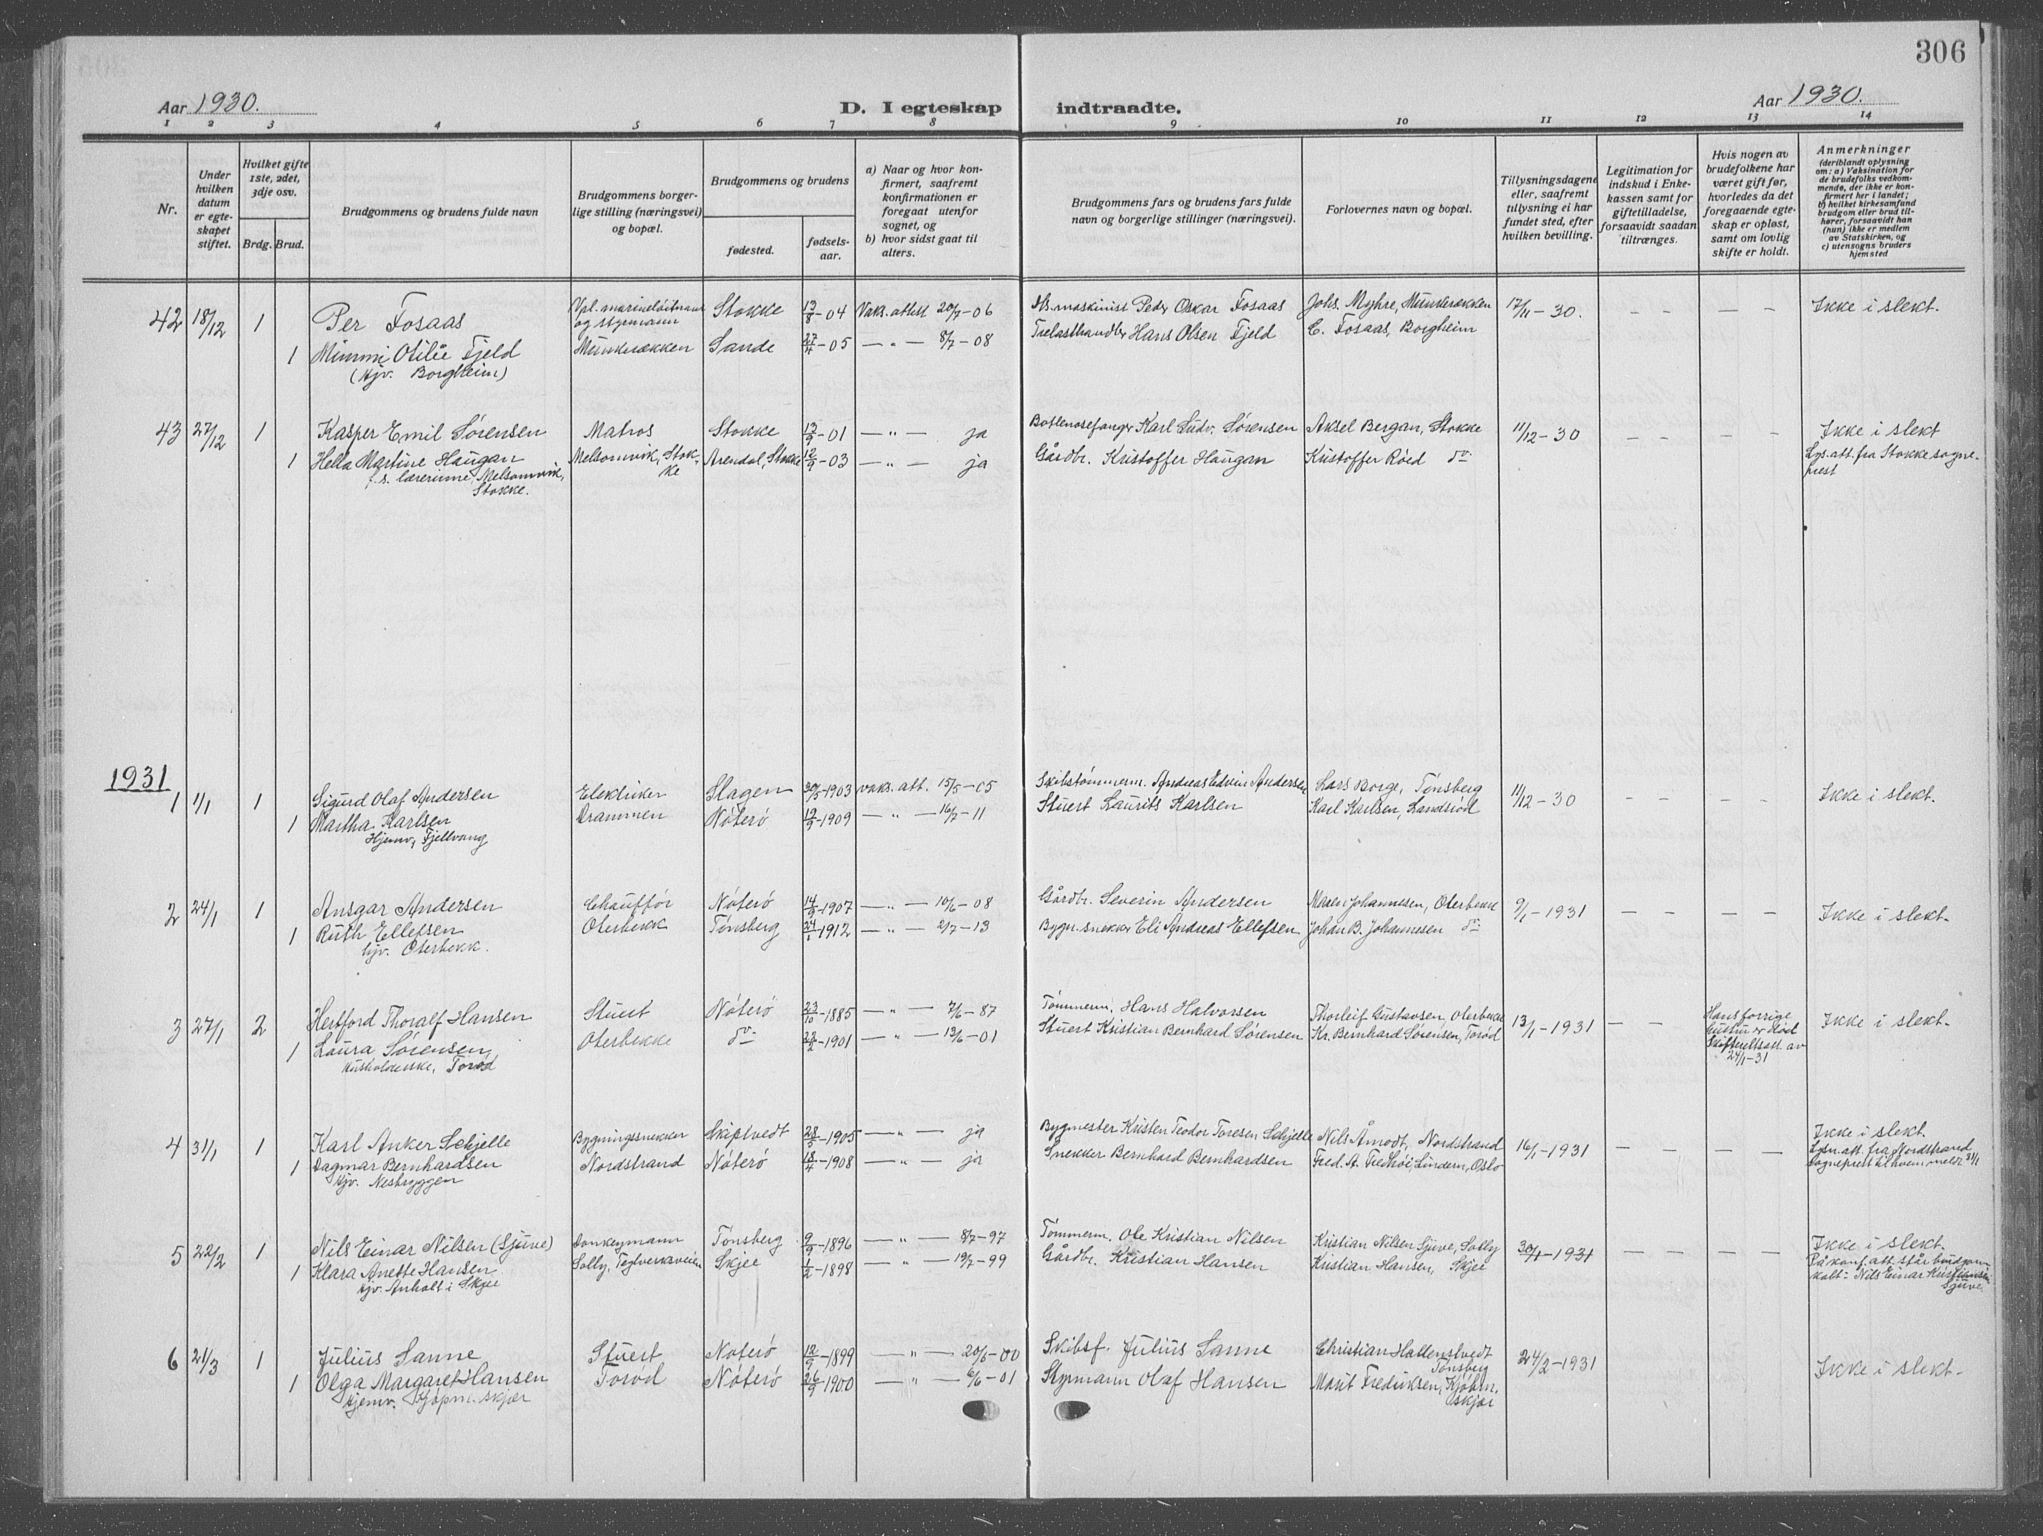 306
Aar 1930.
D. I egteskap indtraadte.
Aar 1930.
1 2 3 4 5 6 7 8 9 10 11 12 13 14
Nr.
Under hvilken datum er egteskapet stiftet.
Hvilket gifte 1ste, 2det, 3dje osv.
Brdg. Brud.
Brudgommens og brudens fulde navn
Brudgommens borgerlige stilling (næringsvei) og bopæl.
Brudgommens og brudens
fødested.
fødselsaar.
a) Naar og hvor konfirmert, saafremt konfirmationen er foregaat utenfor sognet, og
b) hvor sidst gaat til alters.
Brudgommens fars og brudens fars fulde navn og borgerlige stillinger (næringsvei).
Forlovernes navn og bopæl.
Tillysningsdagene eller, saafremt tillysning ei har fundet sted, efter hvilken bevilling.
Legitimation for indskud i Enkekassen samt for giftetilladelse, forsaavidt saadan tiltrænges.
Hvis nogen av brudefolkene har været gift før, hvorledes da det foregaaende egteskap er opløst, samt om lovlig skifte er holdt.
Anmerkninger
(deriblandt oplysning om: a) Vaksination for de brudefolks vedkommende, der ikke er konfirmert her i landet; b) hvilket kirkesamfund brudgom eller brud tilhører, forsaavidt han (hun) ikke er medlem av Statskirken, og c) utensogns bruders hjemsted
42 18/12 1 Per Fosaas Vpl. marineløitnant og styrmann Stokke 13/8-04 Vaks. attest 20/7-06 Peder Oskar Fosaas Johs. Myhre, Munkerekken 17/11-30. — — — — Ikke i slekt.
1 Mimmi Otilie Fjeld Munkerekken Sande 27/4-05 —"— 8/7-08 Trelasthandler Hans Olsen Fjeld C. Fosaas, Borgheim
(Hjv. Borgheim)
43 27/12 1 Kasper Emil Sørensen Matros Stokke 13/9-01 —"— ja Botlenosefanger Karl Ludv. Sørensen Aksel Bergan, Stokke 11/12-30 — — — — Ikke i slekt
1 Hella Martine Haugan Melsomvik, Stokke Arendal, Stokke 12/9-03 —"— ja Gårdbr. Kristoffer Haugan Kristoffer Røed do Lys.att. fra Stokke sogneprest
s. lærerinne, Melsomvik, Stokke.
1931
1 1/1 1 Sigurd Olaf Andersen Elektriker Slagen 30/5-1903 vaks. att. 15/5-05 Skibstømmerm. Andreas Edvin Andersen Lars Borge, Tønsberg 11/12-30 — — — — Ikke i slekt.
1 Martha Karlsen Drammen Nøterø 19/9-1909 —"— 16/7-11 Stuert Laurits Karlsen Karl Karlsen, Sandsrød
Hjemv. Fjellvang
2 24/1 1 Ansgar Andersen Chauffør Nøterø 14/9-1907 —"— 10/6-08 Gårdbr. Severin Andersen Johannesen, Oterbekk 9/1-1931 — — — — Ikke i slekt.
1 Ruth Ellefsen Oterbekk Tønsberg 24/1-1912 —"— 2/7-13 Bygn.snekker Eli Andreas Ellefsen Johan B. Johannesen do
hjv. Oterbekk.
3 27/1 2 Hertford Thoralf Hansen Stuert Nøterø 23/10-1885 —"— 7/6-87 Tømmerm. Hans Halvorsen Thorleif Gustavsen, Oterbekk 13/1-1931 — — Hans forrige hustru er død Skifterettsatt. av 24/1-31 Ikke i slekt.
1 Laura Sørensen Oterbekke do 22/2-1901 —"— 13/6-01 Stuert Kristian Bernhard Sørensen Kr. Bernhard Sørensen, Torød
husholderske, Torød
4 31/1 1 Karl Anker Schjelle Bygningssnekker Skiptvedt 28/5-1905 —"— ja Bygmester Kristen Teodor Toresen Schjelle Nils Åmodt, Nordstrand 16/1-1931 — — — — Ikke i slekt.
1 Dagmar Bernhardsen Nordstrand Nøterø 18/4-1908 —"— ja Snekker Bernhard Bernhardsen Fred. A. Fredhøi, Lindern, Oslo Lysn.att. fra Nordstrand Sogneprest til hvem meldt 31/1
Hjv. Nesbryggen
5 22/2 1 Nils Einar Nilsen (Sjuve) Donkeymann Tønsberg 9/9-1896 —"— 8/7-97 Tømmerm. Ole Kristian Nilsen Kristian Nilsen Sjuve, Solly 30/1-1931 — — — — Ikke i slekt.
1 Klara Anette Hansen Solly, Teglverksveien Skjee 1/2-1898 —"— 19/7-99 Gårdbr. Kristian Hansen Kristian Hansen, Skjee På konf.att. står brudgom. kalt: Nils Einar Kristiansen Sjuve.
Hjv. Anholt i Skjee
6 21/3 1 Julius Sanne Stuert Nøterø 12/9-1899 —"— 20/6-00 Skibsf. Julius Sanne Christian Hallenstvedt Tønsberg 24/2-1931 Ikke i slekt.
1 Olga Margaret Hansen Torød Nøterø 26/9-1900 —"— 6/6-01 Styrmann Olaf Hansen Marit Fredriksen, Kjøbm.skjær
Hjemv. Kjøpm.skjær